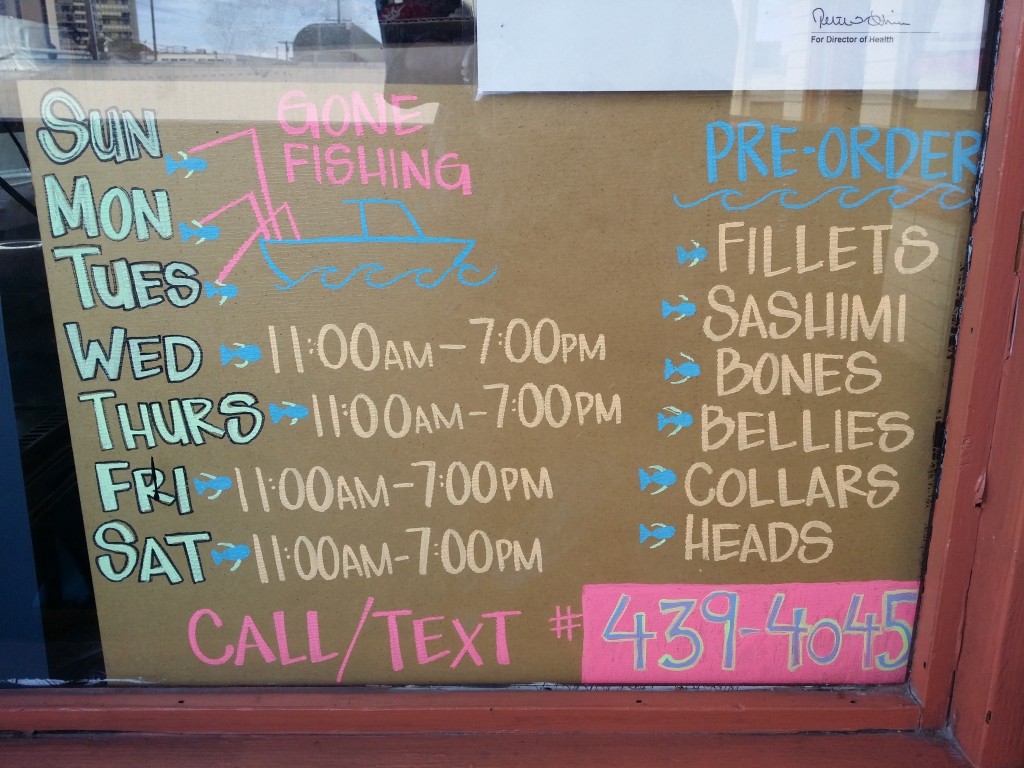 For Director of Health
SUN
MON
TUES
GONE
FISHING
WED 11:00AM-7:00PM
THURS 11:00AM-7:00PM
FRI 11:00AM-7:00PM
SAT 11:00AM-7:00PM
PRE-ORDER
FILLETS
SASHIMI
BONES
BELLIES
COLLARS
HEADS
CALL/TEXT # 439-4045